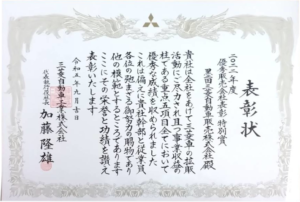 表彰状
二〇二二年度
優秀販売会社表彰 特別賞
黒田三菱自動車販売株式会社殿
貴社は全社をあげて三菱車の拡販
活動にご尽力され且つ事業収益の
柱である重点五項目全てにおいて
優秀な成績を収められました
これは偏に貴社幹部と従業員
各位の弛まざる御努力の賜物であり
他の模範とするところであります
ここにその栄誉と功績を讃え
表彰いたします
令和五年九月七日
三菱自動車工業株式会社
代表執行役社長
加藤隆雄